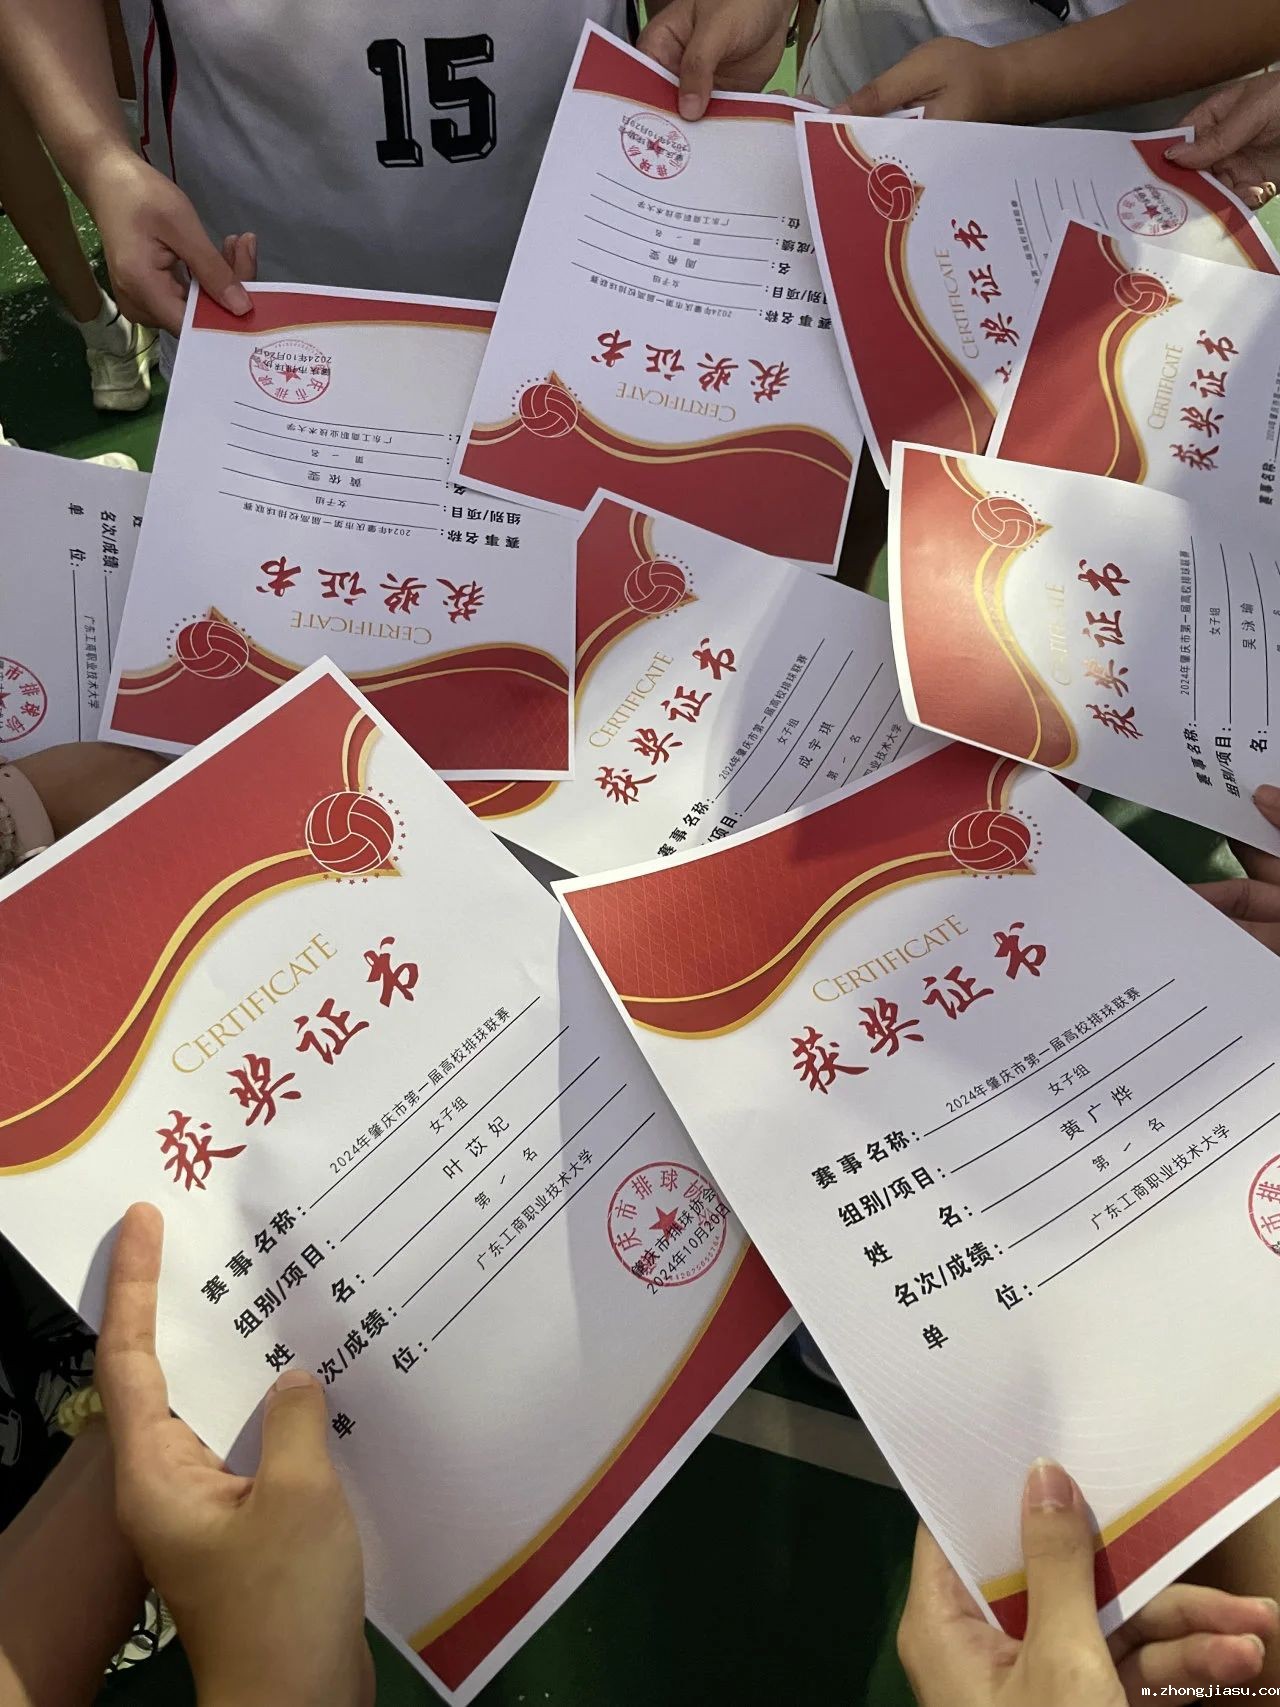 15
2024年10月20日
广东工商职业技术大学
第一名
周
女子组
2024年肇庆市第一届高校排球联赛
位：
名：
组别/项目：
赛事名称：
获奖证书
CERTIFICATE
CERTIFICATE
奖证书
CERTIFICATE
获奖证书
赛事名称：
2024年10月20日
广东工商职业技术大学
第一名
黄依雯
女子组
2024年肇庆市第一届高校排球联赛
组别/项目：
赛事名称：
获奖证书
CERTIFICATE
名次/成绩：
单 位：
广东工商职业技术大学
CERTIFICATE
获奖证书
赛事名称：
2024年肇庆市第一届高校排球联赛
项目：
女子组
成宇琪
第一名
职业技术大学
CERTIFICATE
获奖证书
赛事名称：2024年肇庆市第一届高校排球联赛
组别/项目：女子组
名：吴泳瑜
CERTIFICATE
获奖证书
赛事名称：2024年肇庆市第一届高校排球联赛
组别/项目：女子组
姓 名：叶苡妃
次/成绩：第一名
单 位：广东工商职业技术大学
肇庆市排球协会
2024年10月20日
CERTIFICATE
获奖证书
赛事名称：2024年肇庆市第一届高校排球联赛
组别/项目：女子组
姓 名：黄广烨
名次/成绩：第一名
单 位：广东工商职业技术大学
m.zhongjiasu.com